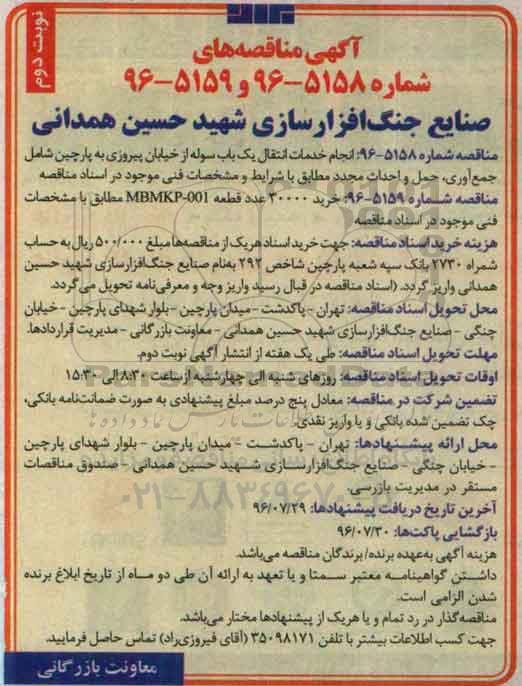 نوبت دوم
آگهی مناقصه‌های
شماره ۵۱۵۸-۹۶ و ۵۱۵۹-۹۶
صنایع جنگ‌افزارسازی شهید حسین همدانی
مناقصه شماره ۵۱۵۸-۹۶: انجام خدمات انتقال یک باب سوله از خیابان پیروزی به پارچین شامل
جمع‌آوری، حمل و احداث مجدد مطابق با شرایط و مشخصات فنی موجود در اسناد مناقصه
مناقصه شماره ۵۱۵۹-۹۶: خرید ۳۰۰۰۰ عدد قطعه MBMKP-001 مطابق با مشخصات
فنی موجود در اسناد مناقصه
هزینه خرید اسناد مناقصه: جهت خرید اسناد هر یک از مناقصه‌ها مبلغ ۵۰۰/۰۰۰ ریال به حساب
شمراه ۲۷۳۰ بانک سپه شعبه پارچین شاخص ۲۹۲ به‌نام صنایع جنگ‌افزارسازی شهید حسین
همدانی واریز گردد. (اسناد مناقصه در قبال رسید واریز وجه و معرفی‌نامه تحویل می‌گردد.
محل تحویل اسناد مناقصه: تهران - پاکدشت - میدان پارچین - بلوار شهدای پارچین - خیابان
چنگی - صنایع جنگ‌افزارسازی شهید حسین همدانی - معاونت بازرگانی - مدیریت قراردادها.
مهلت تحویل اسناد مناقصه: طی یک هفته از انتشار آگهی نوبت دوم.
اوقات تحویل اسناد مناقصه: روزهای شنبه الی چهارشنبه از ساعت ۸:۳۰ الی ۱۵:۳۰
تضمین شرکت در مناقصه: معادل پنج درصد مبلغ پیشنهادی به صورت ضمانت‌نامه بانکی،
چک تضمین شده بانکی و یا واریز نقدی.
محل ارائه پیشنهادها: تهران - پاکدشت - میدان پارچین - بلوار شهدای پارچین
- خیابان چنگی - صنایع جنگ‌افزارسازی شهید حسین همدانی - صندوق مناقصات
مستقر در مدیریت بازرسی.
۰۲۱-۸۸۳۴۹۶۷۰
آخرین تاریخ دریافت پیشنهادها: ۹۶/۰۷/۲۹
بازگشایی پاکت‌ها: ۹۶/۰۷/۳۰
هزینه آگهی به‌عهده برنده/ برندگان مناقصه می‌باشد.
داشتن گواهینامه معتبر سمتا و یا تعهد به ارائه آن طی دو ماه از تاریخ ابلاغ برنده
شدن الزامی است.
مناقصه‌گذار در رد تمام و یا هریک از پیشنهادها مختار می‌باشد.
جهت کسب اطلاعات بیشتر با تلفن ۳۵۰۹۸۱۷۱ (آقای فیروزی‌راد) تماس حاصل فرمایید.
معاونت بازرگانی